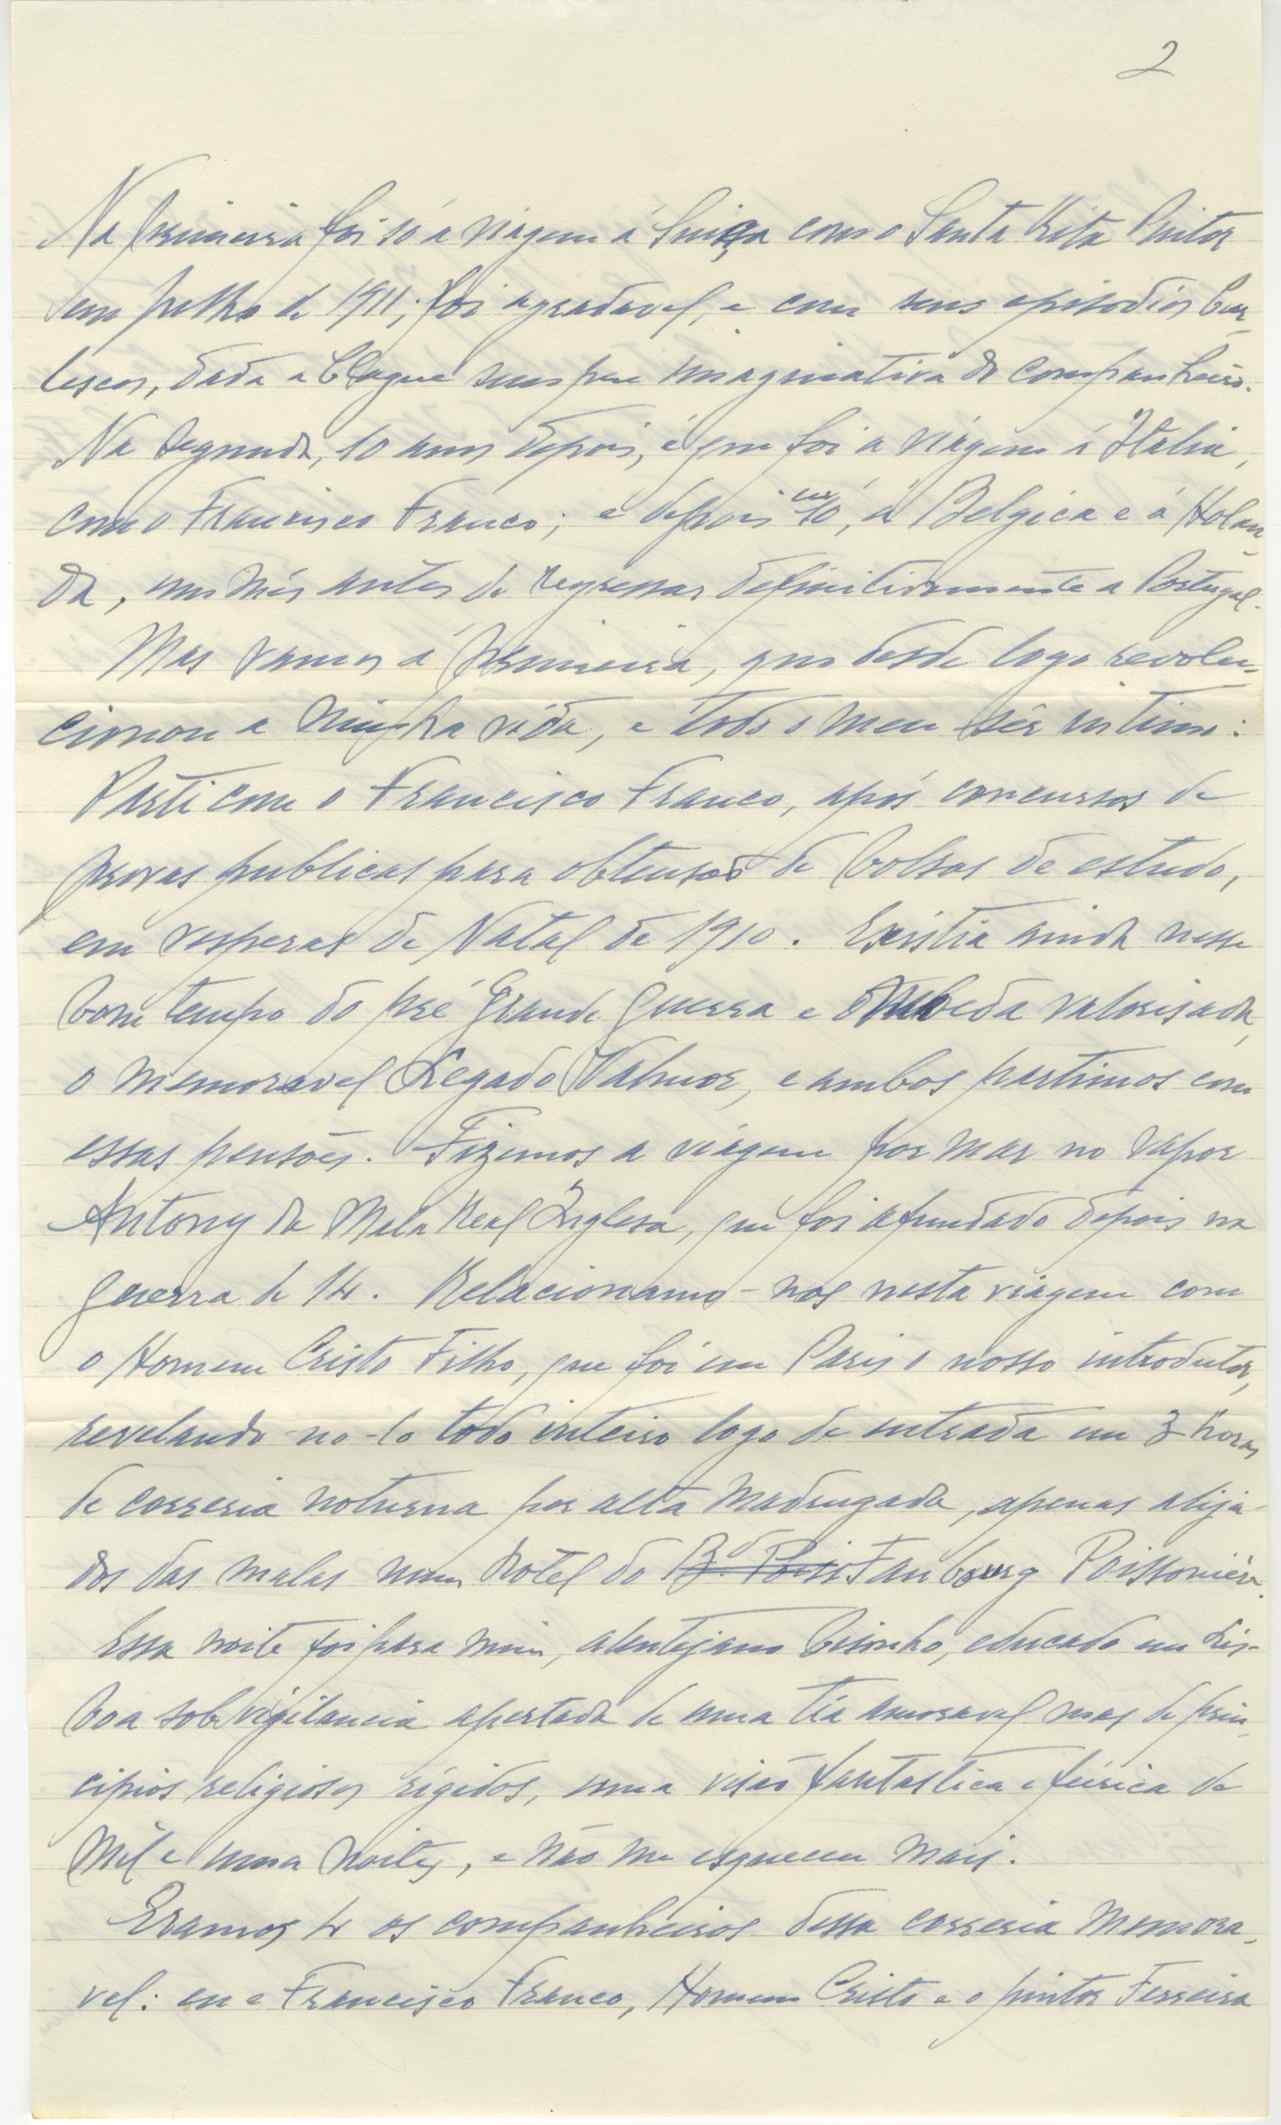 2
Na primeira foi só a viágem á Suiça com o Santa Rita Pintor
em julho de 1911; foi agradavel, e com seus episodios bur-
lescos, dada a blague sempre imaginativa do companheiro.
Na segunda, 10 anos depois, é que foi a viágem á Italia,
com o Francisco Franco; e depois eu só, á Belgica e á Holan-
da, um mês antes de regressar definitivamente a Portugal.
Mas vamos á primeira, que desde logo revolu-
cionou a minha vida, e todo o meu sêr intimo:
Parti com o Francisco Franco, após concursos de
provas publicas para obtensão de bolsas de estudo,
em vesperas de Natal de 1910. Existia ainda nesse
bom tempo do pré Grande Guerra e moeda valorisada,
o memoravel Legado Valmor, e ambos partimos com
essas pensões. Fizemos a viágem por mar no vapor
Antony da Mala Real Inglesa, que foi afundado depois na
guerra de 14. Relacionamo-nos nesta viagem com
o Homem Cristo Filho, que foi em Paris o nosso introdutor,
revelando-no-lo todo inteiro logo de entrada em 3 horas
de correria noturna por alta madrugada, apenas alija-
dos das malas num hotel do B.d Poiss Faubourg Poissonière.
Essa noite foi para mim, alentejano bisonho, educado em Lis-
boa sob vigilancia apertada de uma tia amoravel mas de prin-
cipios religiosos rígidos, uma visão fantastica e feérica de
Mil e uma noites, e não me esqueceu mais.
Eramos 4 os companheiros dessa correria memora-
vel: eu e Francisco Franco, Homem Cristo e o pintor Ferreira